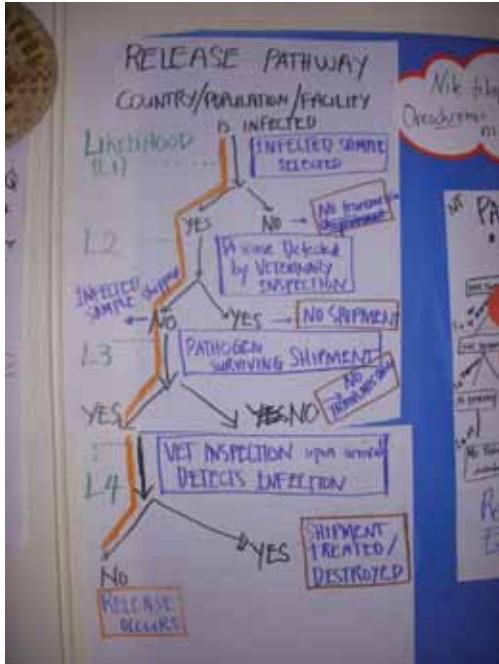 RELEASE PATHWAY
COUNTRY/POPULATION/FACILITY
IS INFECTED
LIKELIHOOD
(L1)
INFECTED SAMPLE
SELECTED
YES
NO
No
L2
Detected
by VETERINARY
INSPECTION
INFECTED
SAMPLE shipped
NO
YES
NO SHIPMENT
L3
PATHOGEN
SURVIVING SHIPMENT
YES
YES NO
NO
L4
VET INSPECTION upon arrival
DETECTS INFECTION
NO
YES
SHIPMENT
TREATED/
DESTROYED
RELEASE
OCCURS
Nile